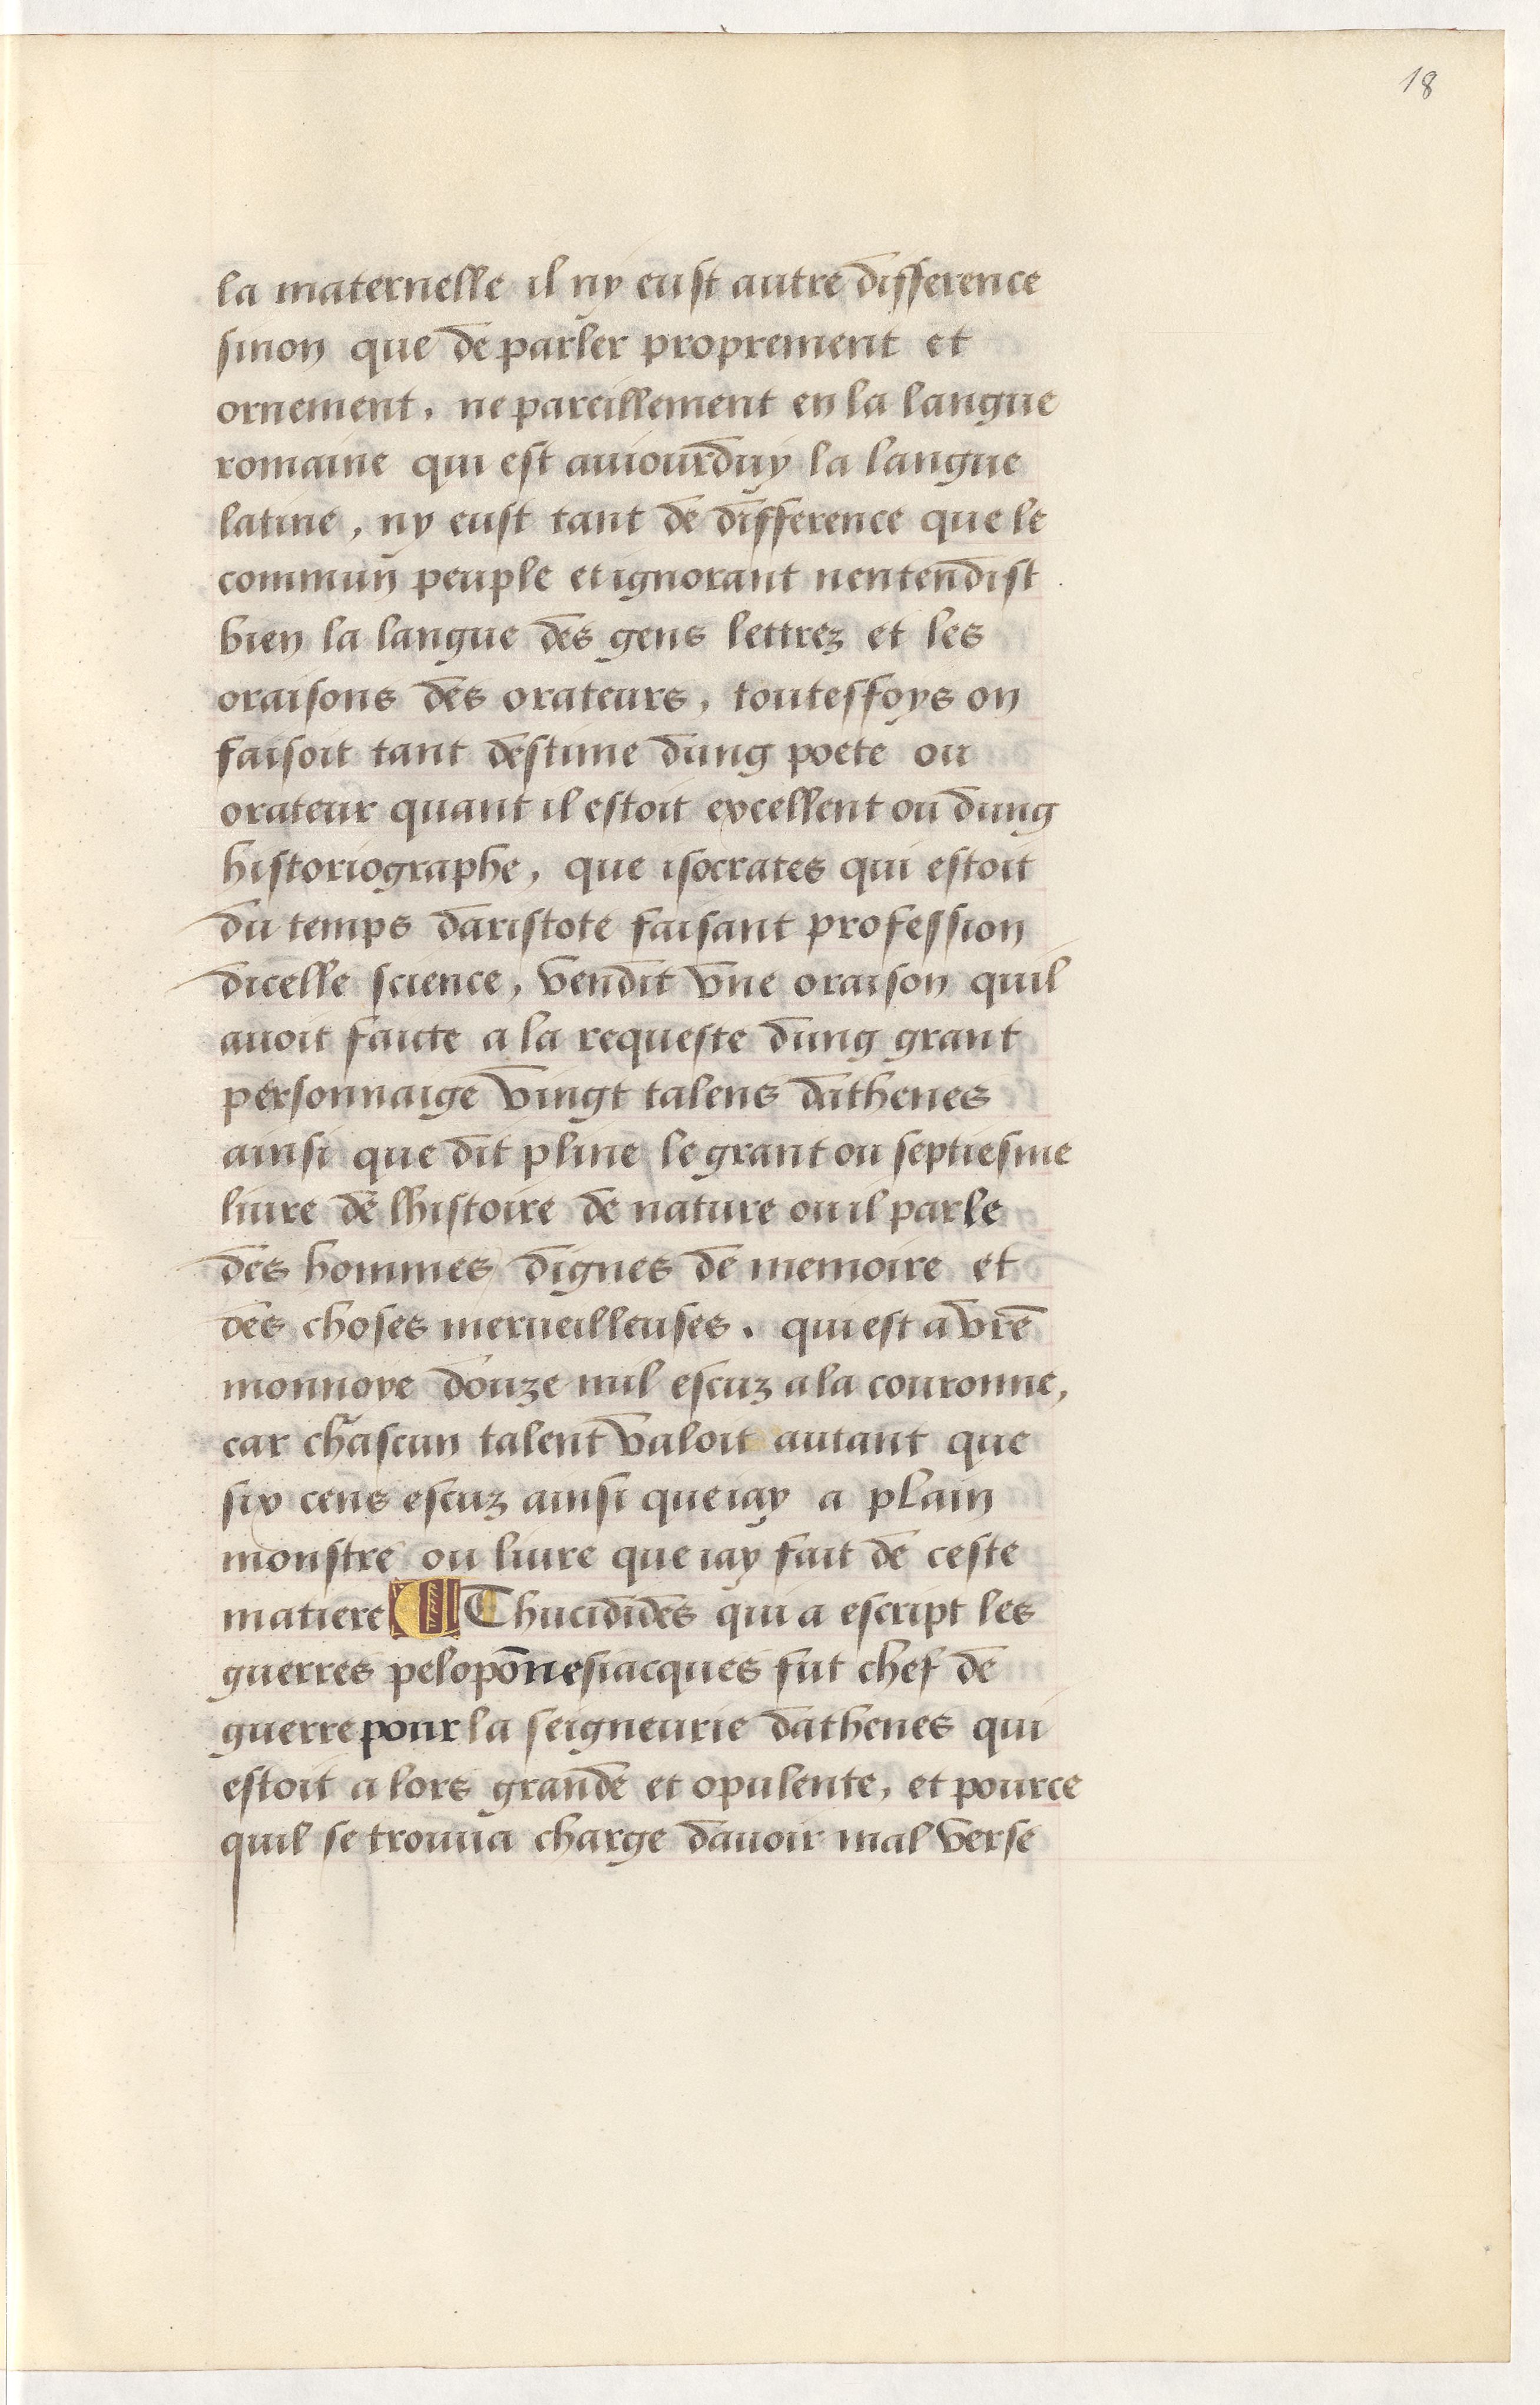 18
la maternelle il ny eust autre difference
sinon que de parler proprement et
ornement, ne pareillement en la langue
romaine qui est auiourduy la langue
latine, ny eust tant de difference que le
commun peuple et ignorant nentendist
bien la langue des gens lettrez et les
oraisons des orateurs, toutesfoys on
faisoit tant destime dung poete ou
orateur quant il estoit excellent ou dung
historiographe, que isocrates qui estoit
du temps daristote faisant profession
dicelle science, vendit vne oraison quil
auoit faicte a la requeste dung grant
personnaige vingt talens dathenes
ainsi que dit pline le grant ou septiesme
liure de lhistoire de nature ou il parle
des hommes dignes de memoire et
des choses merueilleuses. qui est a vr̄e
monnoye douze mil escuz a la couronne,
car chascun talent valoit autant que
six cens escuz ainsi que iay a plain
monstre ou liure que iay fait de ceste
matiere ¶ Thucidides qui a escript les
guerres pelopōnesiacques fut chef de
guerre pour la seigneurie dathenes qui
estoit a lors grande et opulente, et pource
quil se trouua charge dauoir mal verse